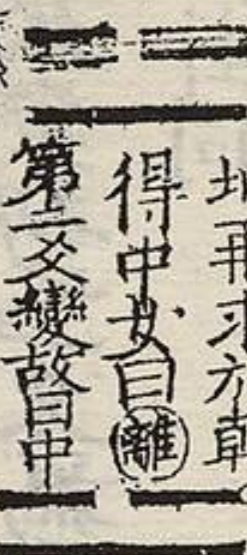 坤再求於乾
得中女曰離
第二爻變故曰中